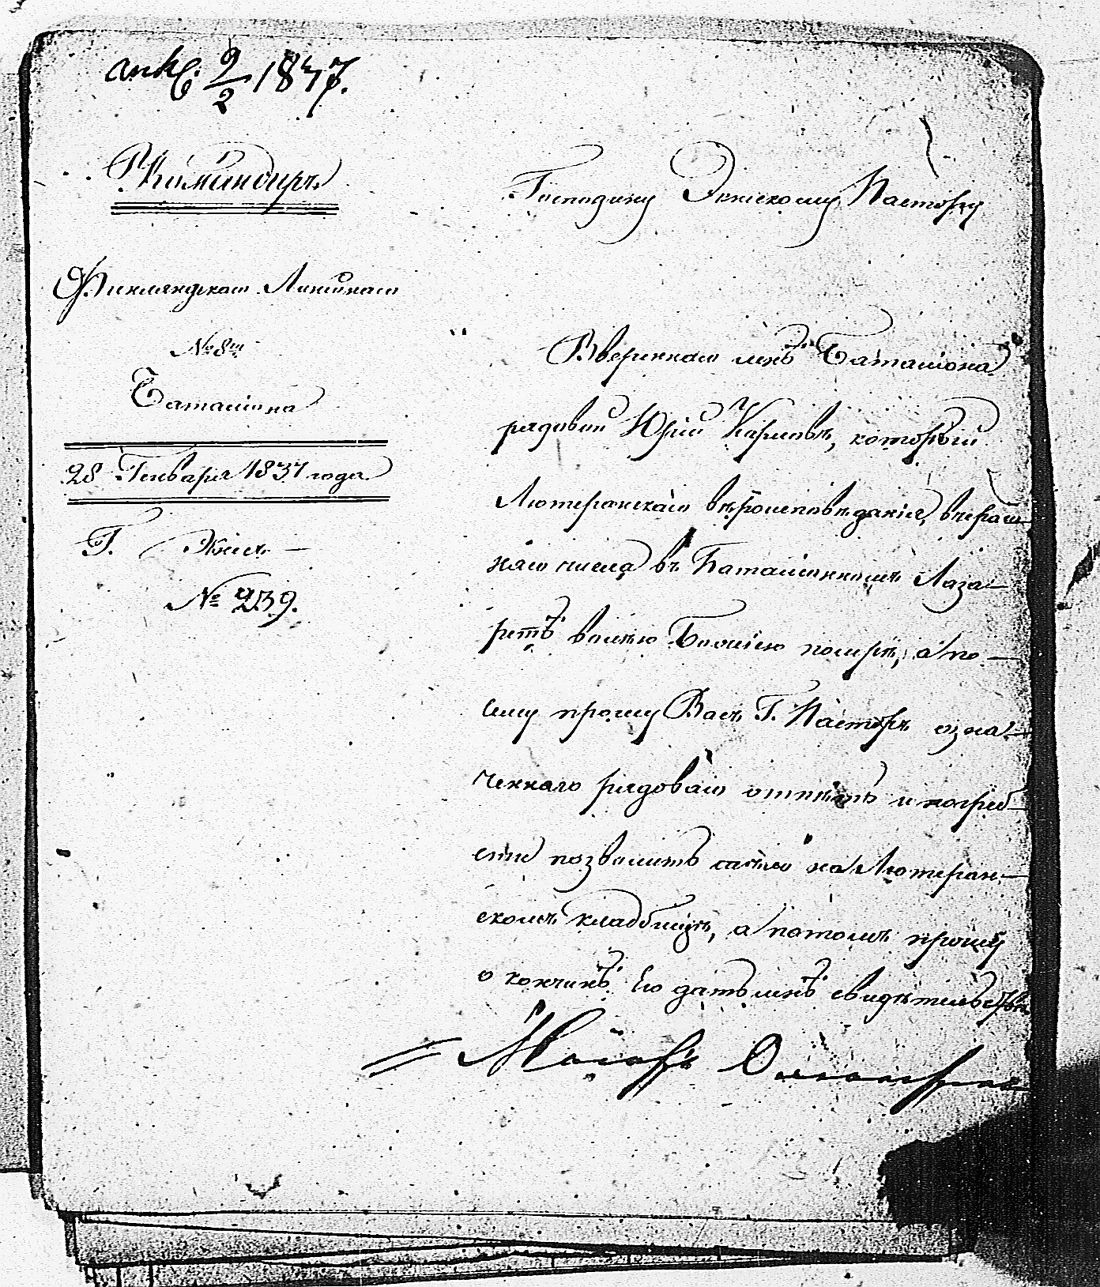 ank. 9/2 1837.
Командиръ
Финляндскаго Линѣйнаго
№ 8го
Баталіона
28 Генваря 1837 года
Г.
№ 239.
Господину Пастору
Ввѣреннаго мнѣ Баталіона
рядовой Юрій Карповъ, который
Лютеранскаго вѣроисповѣданія, вчераш-
няго числа въ Баталіонномъ Лаза-
ретѣ волѣю Божіею помре, а по-
сему прошу Васъ Г. Пасторъ озна-
ченнаго рядоваго отпѣть и погреб-
сти позволить тѣло на Лютеран-
скомъ кладбищѣ, а потомъ прошу
о кончинѣ Его дать мнѣ свидѣтельство
Маіоръ